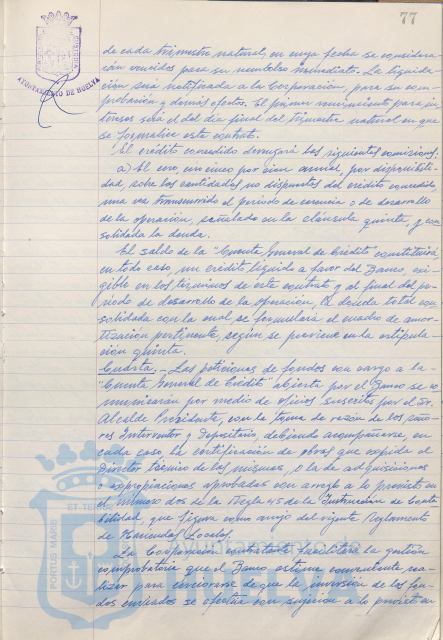 77
AYUNTAMIENTO DE HUELVA
de cada trimestre natural, en cuya fecha se considera-
rán vencidos para su reembolso inmediato. La liquida-
ción será notificada a la Corporación, para su com-
probación y demás efectos. El primer vencimiento para in-
tereses será el del día final del trimestre natural en que
se formalice este contrato.
El crédito concedido devengará las siguientes comisiones:
a) El cero, cinco por cien anual, por disponibili-
dad, sobre las cantidades no dispuestas del crédito concedido
una vez transcurrido el período de carencia o de desarrollo
de la operación, señalado en la cláusula quinta, y con-
solidada la deuda.
El saldo de la "Cuenta General de Crédito" constituirá,
en todo caso, un crédito líquido a favor del Banco, exi-
gible en los términos de este contrato y el final del pe-
ríodo de desarrollo de la operación, la deuda total con-
solidada con la cual se formulará el cuadro de amor-
tización pertinente, según se previene en la estipula-
ción quinta.
Cuarta.- Las peticiones de fondos con cargo a la-
"Cuenta General de Crédito" abierta por el Banco se co-
municarán por medio de oficios suscritos por el Sr.
Alcalde Presidente, con la toma de razón de los seño-
res Interventor y Depositario, debiendo acompañarse, en
cada caso, la certificación de obras que expida el
Director técnico de las mismas, o la de adquisiciones
o expropiaciones aprobadas con arreglo a lo previsto en
el número dos de la Regla 45 de la Instrucción de Conta-
bilidad, que figura como anejo del vigente Reglamento
de Haciendas Locales.
La Corporación contratante facilitará la gestión
comprobatoria que el Banco estime conveniente rea-
lizar para cerciorarse de que la inversión de los fon-
dos enviados se efectúa con sujeción a lo previsto en
PORTUS MARIS
ET TERRAE
Ayuntamiento de
HUELVA